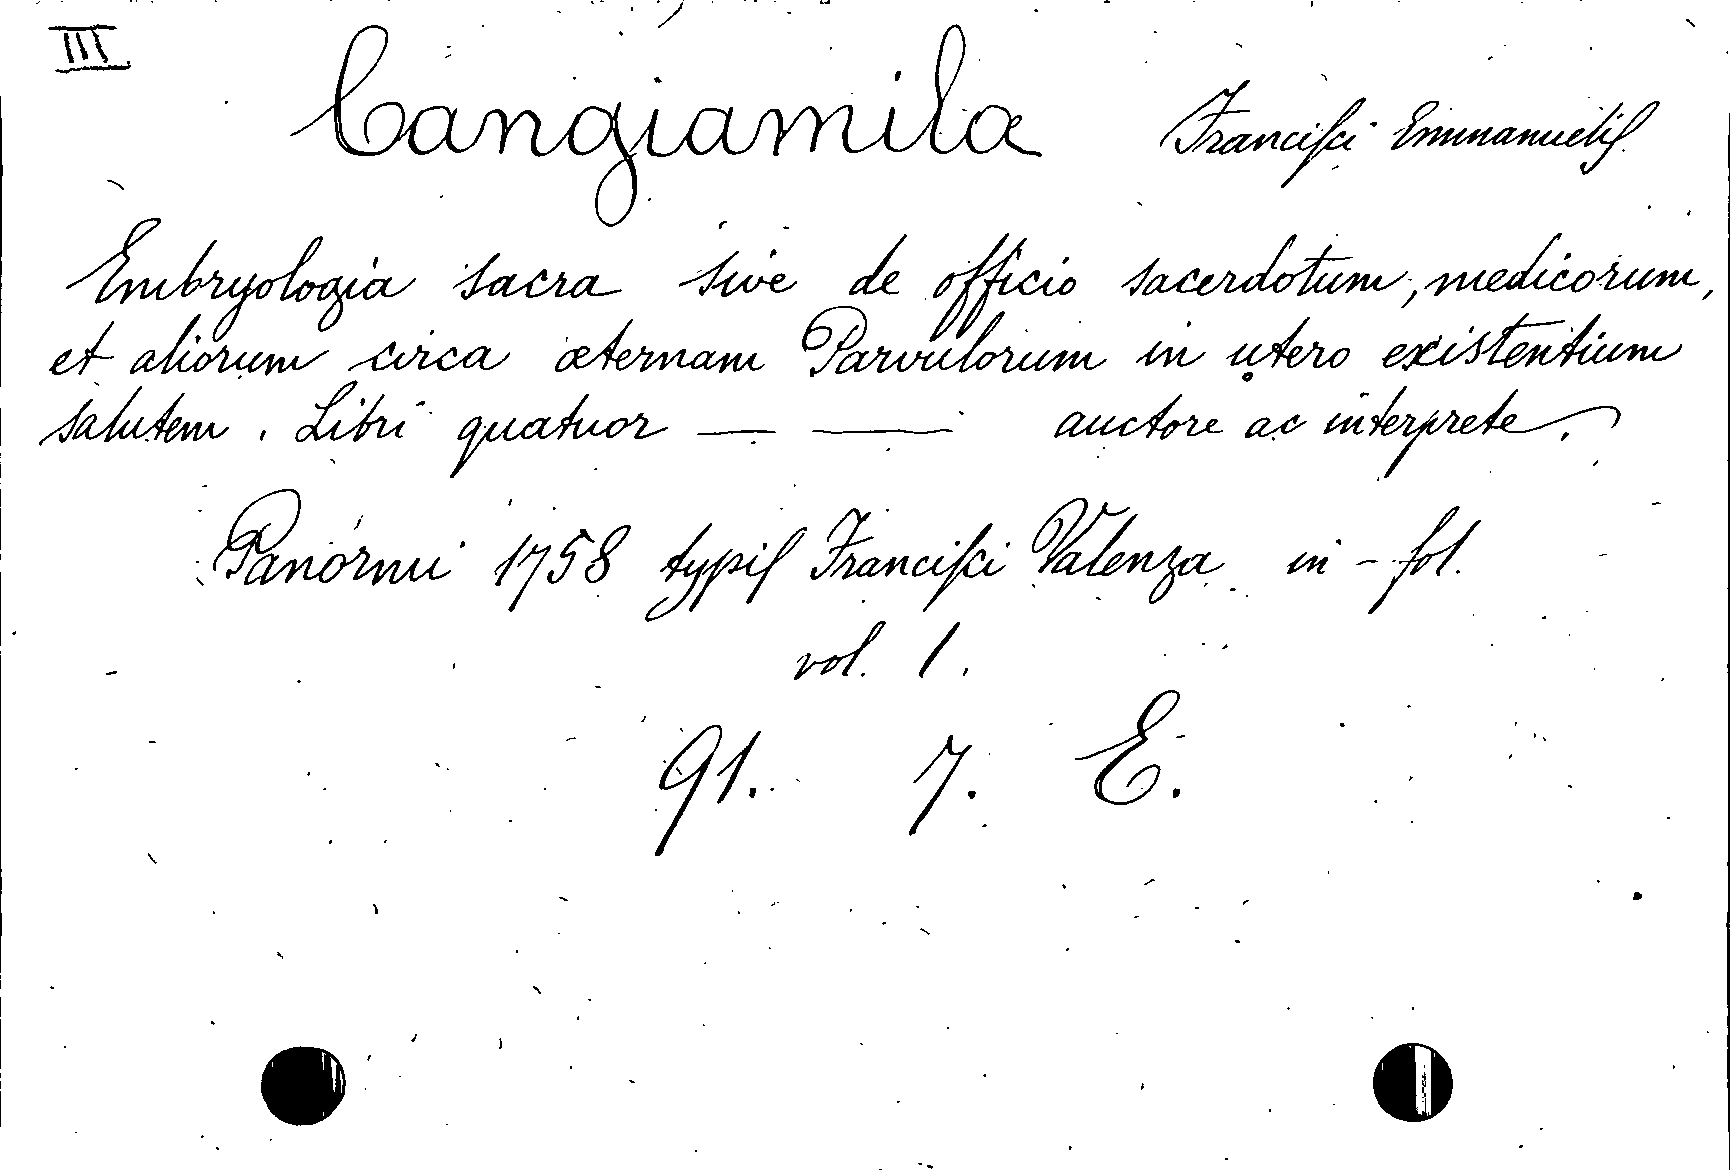 III
Cangiamila Franciſci Emmanueliſ
Embryologia sacra sive de officio sacerdotum, medicorum,
et aliorum circa æternam Parvulorum in utero existentium
salutem. Libri quatuor — — auctore ac interprete.
Panormi 1758 typiſ Franciſci Valenza in-fol.
vol. 1.
91. 7. E.